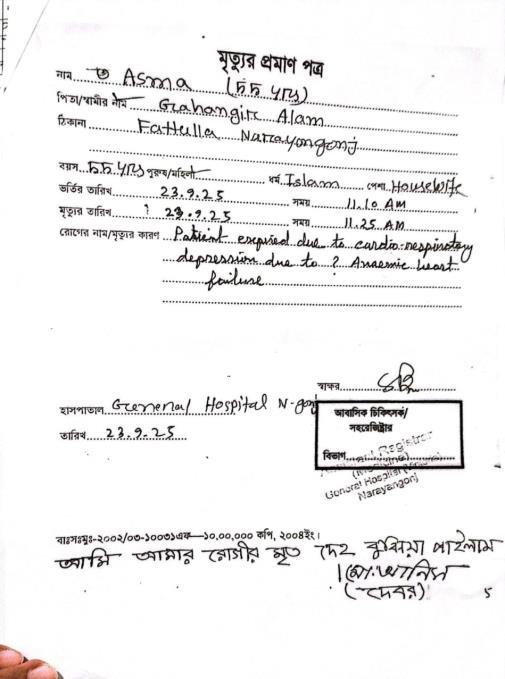 মৃত্যুর প্রমাণ পত্র
নাম Asma (55 yrs)
পিতা/স্বামীর নাম Gahangir Alam
ঠিকানা Fattulla Narayongonj
বয়স 55 yrs পুরুষ/মহিলা ধর্ম Islam পেশা Housewife
ভর্তির তারিখ 23.9.25 সময় 11.10 AM
মৃত্যুর তারিখ ? 23.9.25 সময় 11.25 AM
রোগের নাম/মৃত্যুর কারণ Patient expired due to cardio-respiratory
depression due to ? Anaemic heart
failure
স্বাক্ষর
হাসপাতাল General Hospital N-gonj
আবাসিক চিকিৎসক/
সহরেজিষ্ট্রার
তারিখ 23.9.25
বিভাগ
Registrar
(Medicine)
General Hospital
Narayangonj
বাঃসঃমুঃ-২০০২/০৩-১০০৩১এফ—১০,০০,০০০ কপি, ২০০৪ইং।
আমি আমার রোগীর মৃত দেহ বুঝিয়া পাইলাম
মো: আনিস
(দেবর)
5